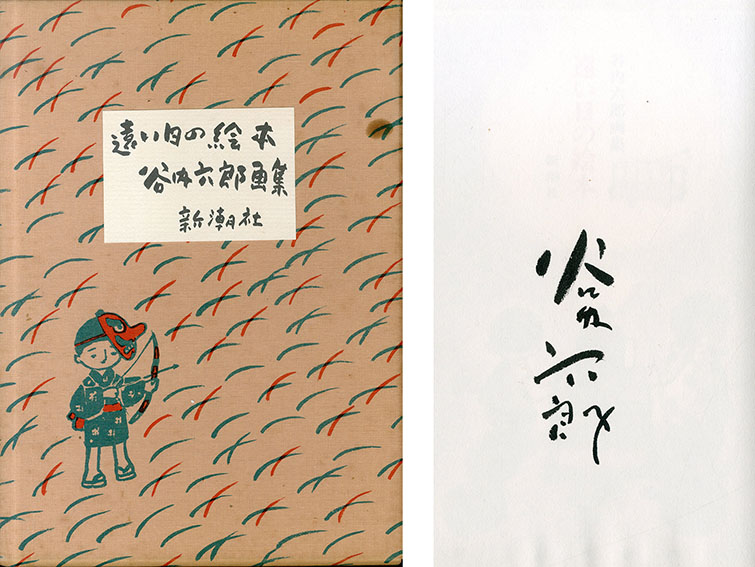 遠い日の絵本
谷内六郎画集
新潮社
谷内六郎